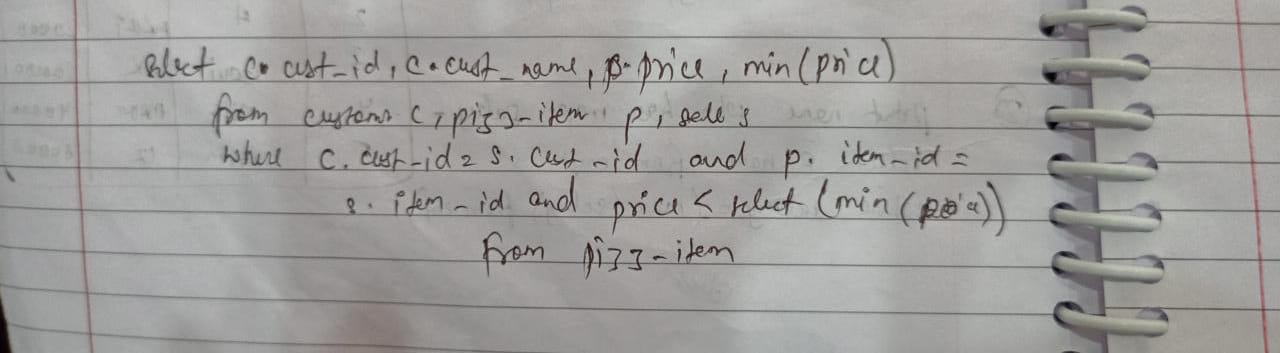 select c. cust_id, c. cust_name, p. price, min(price)
from customer c, pizz-item p, sele s
where c. cust-id = s. cust-id and p. item-id =
s. item-id and price < select (min (price))
from pizz-item